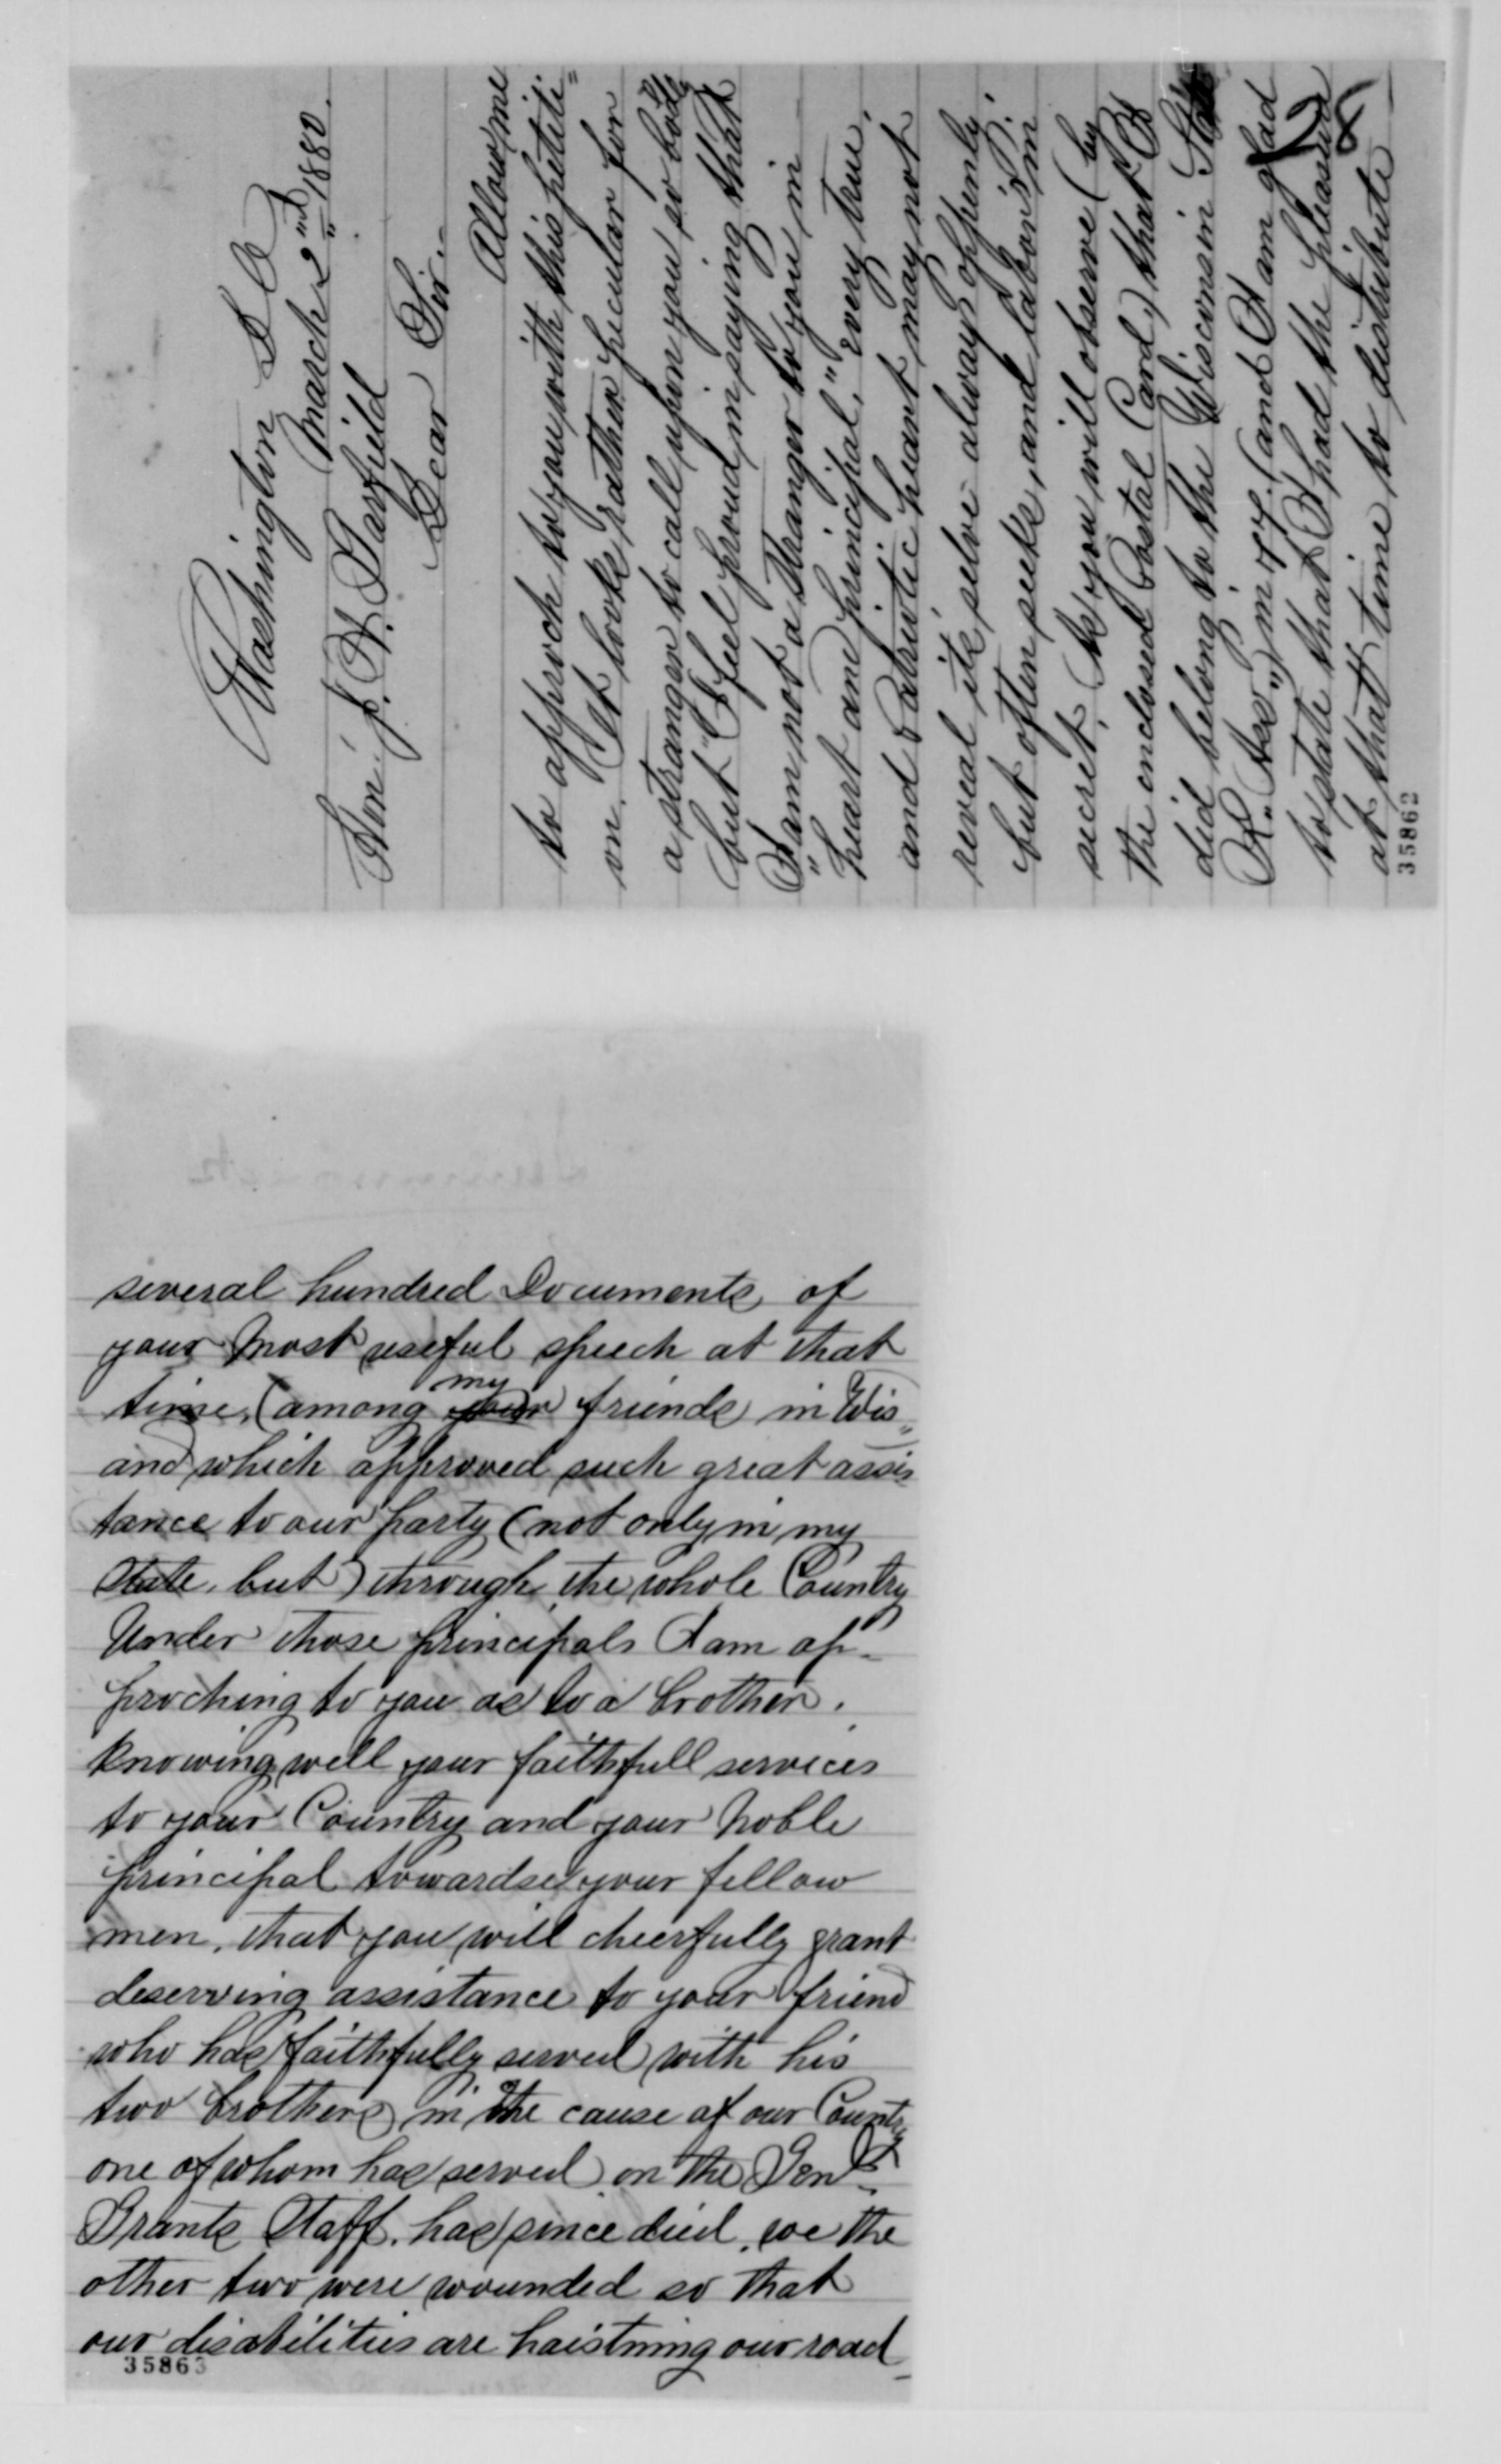 Washington D C
March 2nd 1880.
Hon. J. A. Garfield
Dear Sir.-
Allow me
to approch to you with this petiti=
on. (It looks rather peculiar for
a stranger to call upon you so boldly
but "I feel proud in saying that
I am not a stranger to you in
"heart and principal," every true
and Patriotic heart may not
reveal its selve always oppenly,
but often seeks, and labors in
secret, As you will observe (by
the enclosed Postal Card) that I
did belong to the Wisconsin State
in 77. (and I am glad
to state that I had the pleasure
at that time to distribute
35862
several hundred Documents of
your Most useful speech at that
time, (among your my friends in Wis„
and which approved such great assis
tance to our party (not only in my
State, but) through the whole Country
Under those principals I am ap-
proching to you as to a brother.
knowing well your faithfull services
to your Country and your Noble
principal towardse your fellow
men, that you will cheerfully grant
deserving assistance to your friend
who has faithfully served with his
two brothers in the cause of our Country
one of whom has served on the Genl
Grants Staff, has since died, we the
other two were wounded so that
our disabilities are haistning our road
35863